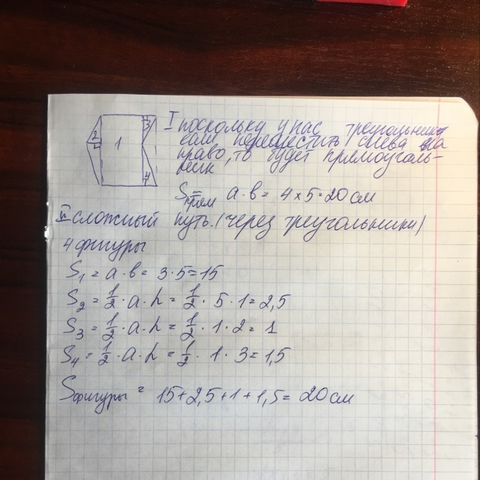 2
1
3
4
I поскольку у нас треугольник
сам переместить слева на
право, то будет прямоуголь-
ник
Sпрям = a·b = 4×5=20см
II сложный путь. (через треугольники)
4 фигуры
S₁ = a·b = 3·5=15
S₂ = 1/2·a·h = 1/2·5·1=2,5
S₃ = 1/2·a·h = 1/2·1·2=1
S₄ = 1/2·a·h = 1/2·1·3=1,5
Sфигуры = 15+2,5+1+1,5=20см